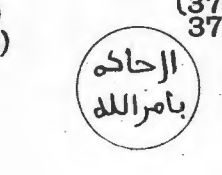 (37
37
)
الحاكم
بامر الله